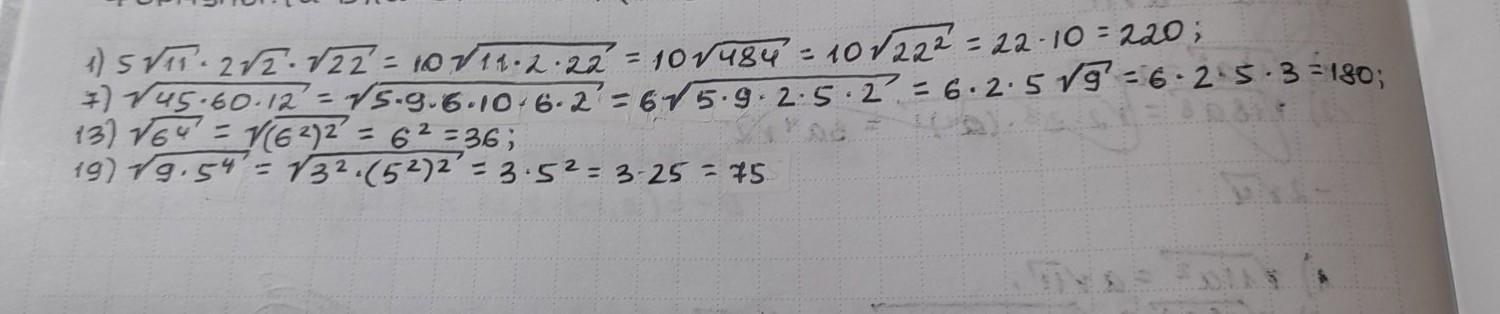 1) 5√11 · 2√2 · √22 = 10√11·2·22 = 10√484 = 10√22² = 22·10 = 220;
7) √45·60·12 = √5·9·6·10·6·2 = 6√5·9·2·5·2 = 6·2·5√9 = 6·2·5·3 = 180;
13) √6⁴ = √(6²)² = 6² = 36;
19) √9·5⁴ = √3²·(5²)² = 3·5² = 3·25 = 75